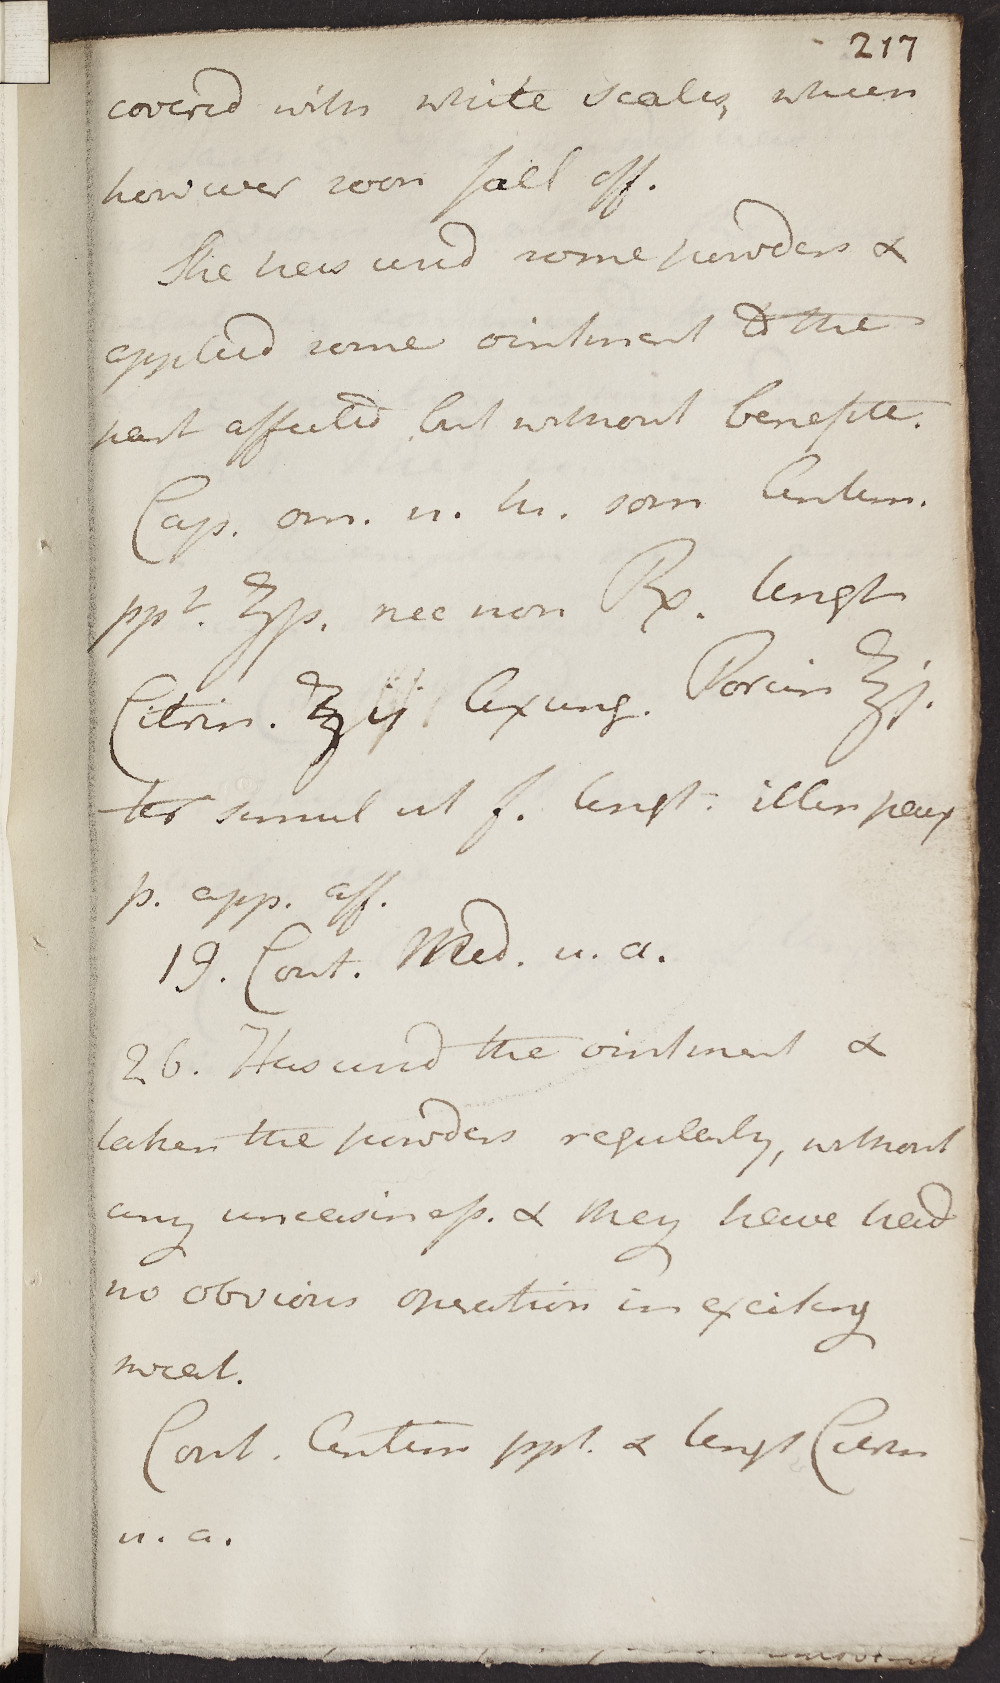 217
covered with white scales, which
however soon fall off.
She has used some powders &
applied some ointment to the
part affected but without benefite.
Cap. om. n. h. som Antim.
ppt. ʒſs. nec non Rx. Ungt
Citrin. ʒij Axung. Porcin ʒj.
ter simul ut f. Ungt: illin parx
p. app. aff.
19. Cont. Med. u. a.
26. Has used the ointment &
taken the powders regularly, without
any uneasiness. & they have had
no obvious operation in exciting
sweat.
Cont. Antim ppt. & Ungt Citrin
u. a.